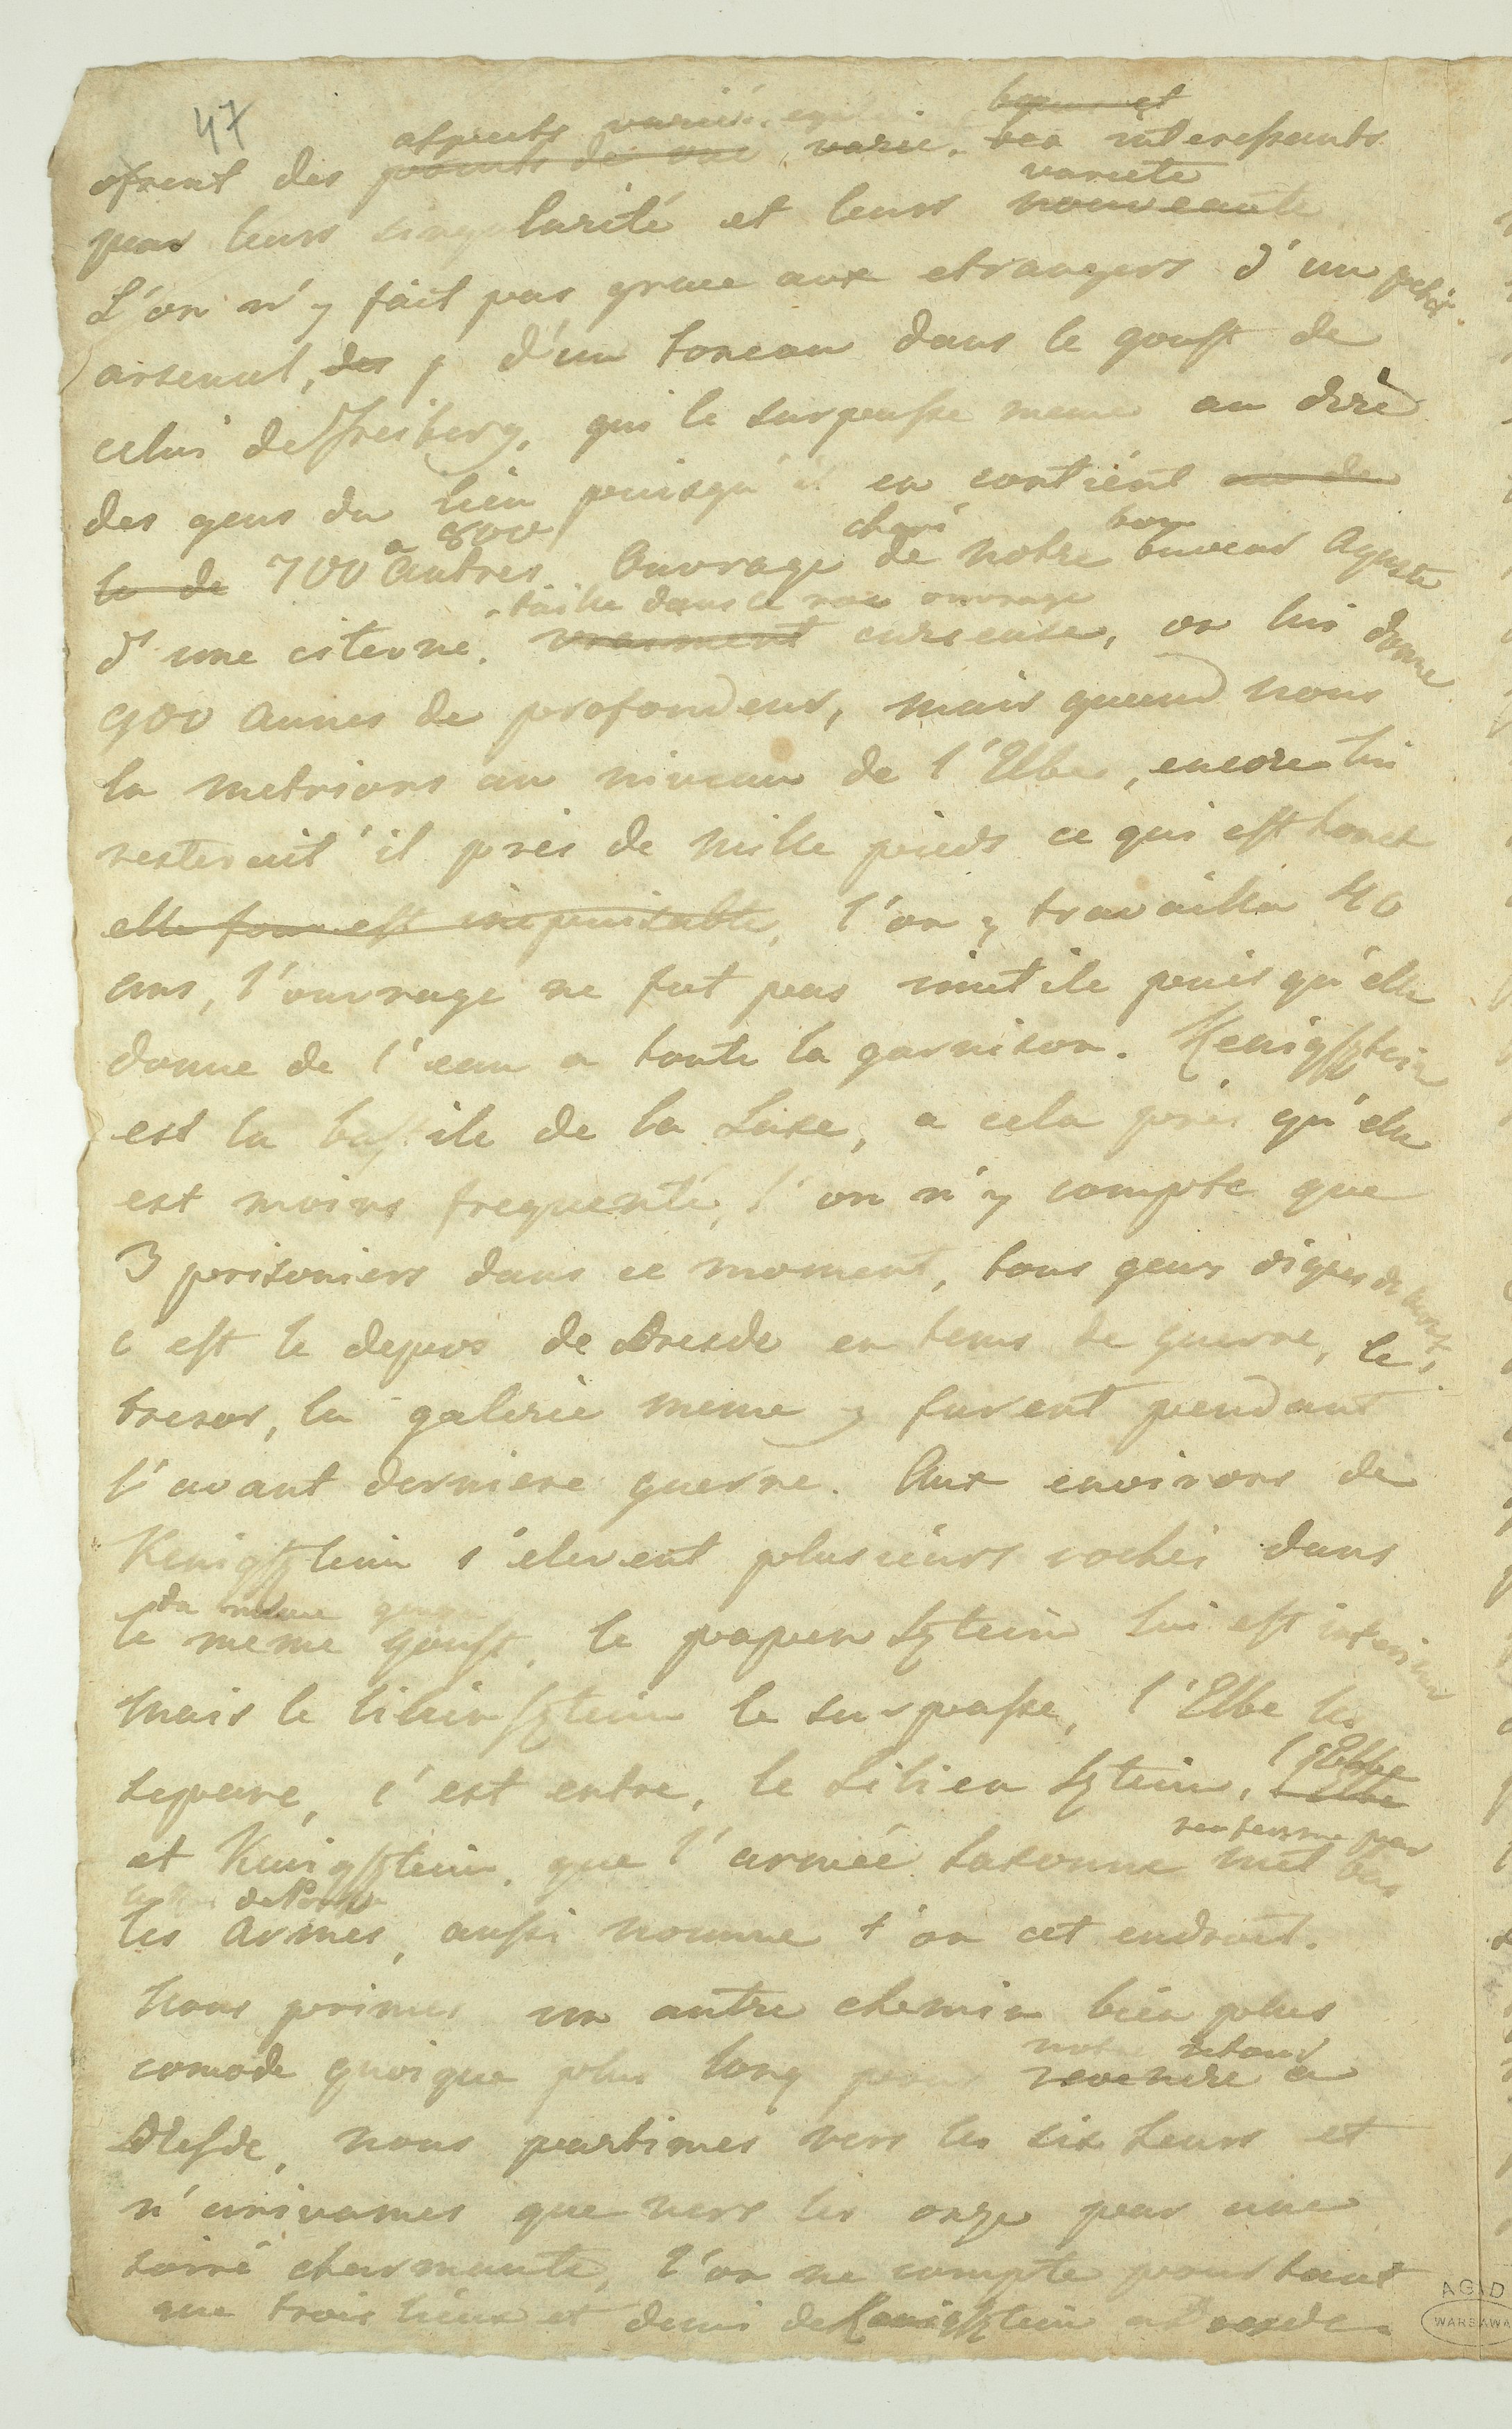 47
aspects variés
ofrent des points de vue varié, interessants
par leurs singularité et leurs nouveauté variete
L'on n'y fait pas grace aux etrangers d'un petit
arsenal, des d'un toneau dans le goust de
celui de Freiberg, qui le surpasse meme au dire
des gens du lieu puisqu'il en contient
la de 700 a 800 autres. Ouvrage cheri de notre bon buveur Aguste
taillé dans le roc ouvrage
d'une citerne. vraiment curieuse, on lui donne
900 aunes de profondeur, mais quand nous
la metrions au niveau de l'Elbe, encore lui
resterait'il prés de mille pieds ce qui est honet
elle est inepuisable, l'on y travailla 40
ans, l'ouvrage ne fut pas inutile puis qu'elle
donne de l'eau a toute la garnison. Kenigsztein
est la bastile de la Saxe, a cela prés qu'elle
est moins frequenté, l'on n'y compte que
3 prisoniers dans ce moment, tous gens dignes de
c'est le depos de Dresde en tems de guerre, le
tresor, la galerie meme y furent pendant
l'avant derniere guerre. Aux environs de
Kenigsztein s'elevent plusieurs rochés dans
du même genre
le meme goust, le papensztein lui est inferieur
mais le liliensztein le surpasse, l'Elbe les
separe, c'est entre, le Liliensztein, l'Elbe l'Elbe
et Kenigsztein, que l'armée saxonne mit bas
renfermé par
les armes, aussi nomme t'on cet endroit.
Nous primes un autre chemin bien plus
comode quoique plus long pour revenire a
notre retour
Dresde, nous partimes vers les six heurs et
n'arivames que vers les onze par une
soiré charmante, l'on ne compte pourtant
que trois lieux et demi de Kenigsztein a Dresde.
AGAD
WARSZAWA